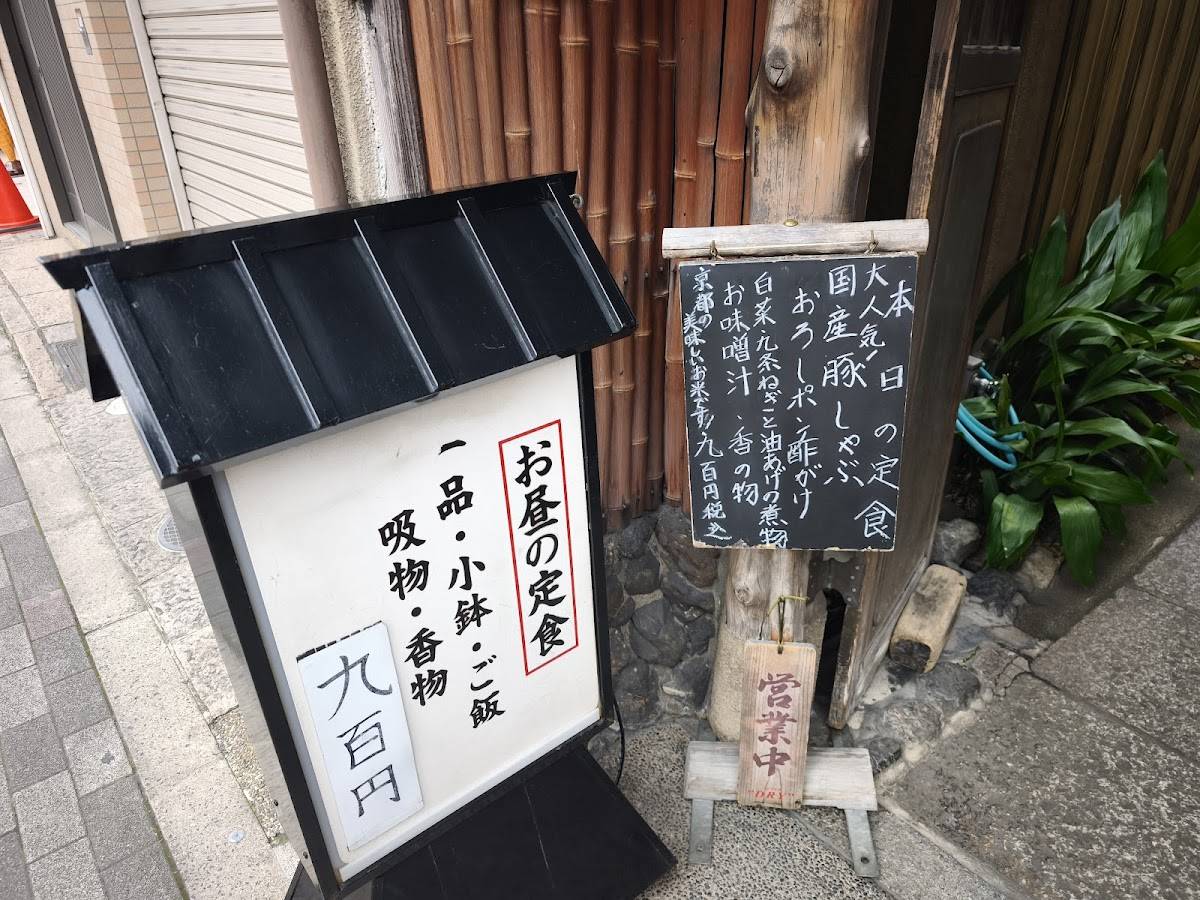 お昼の定食
一品・小鉢・ご飯
吸物・香物
九百円
本日の定食
大人気!
国産豚しゃぶ
おろしポン酢がけ
白菜九条ねぎと油あげの煮物
お味噌汁、香の物
京都の美味しいお米です!
九百円税込
営業中
"DRY"